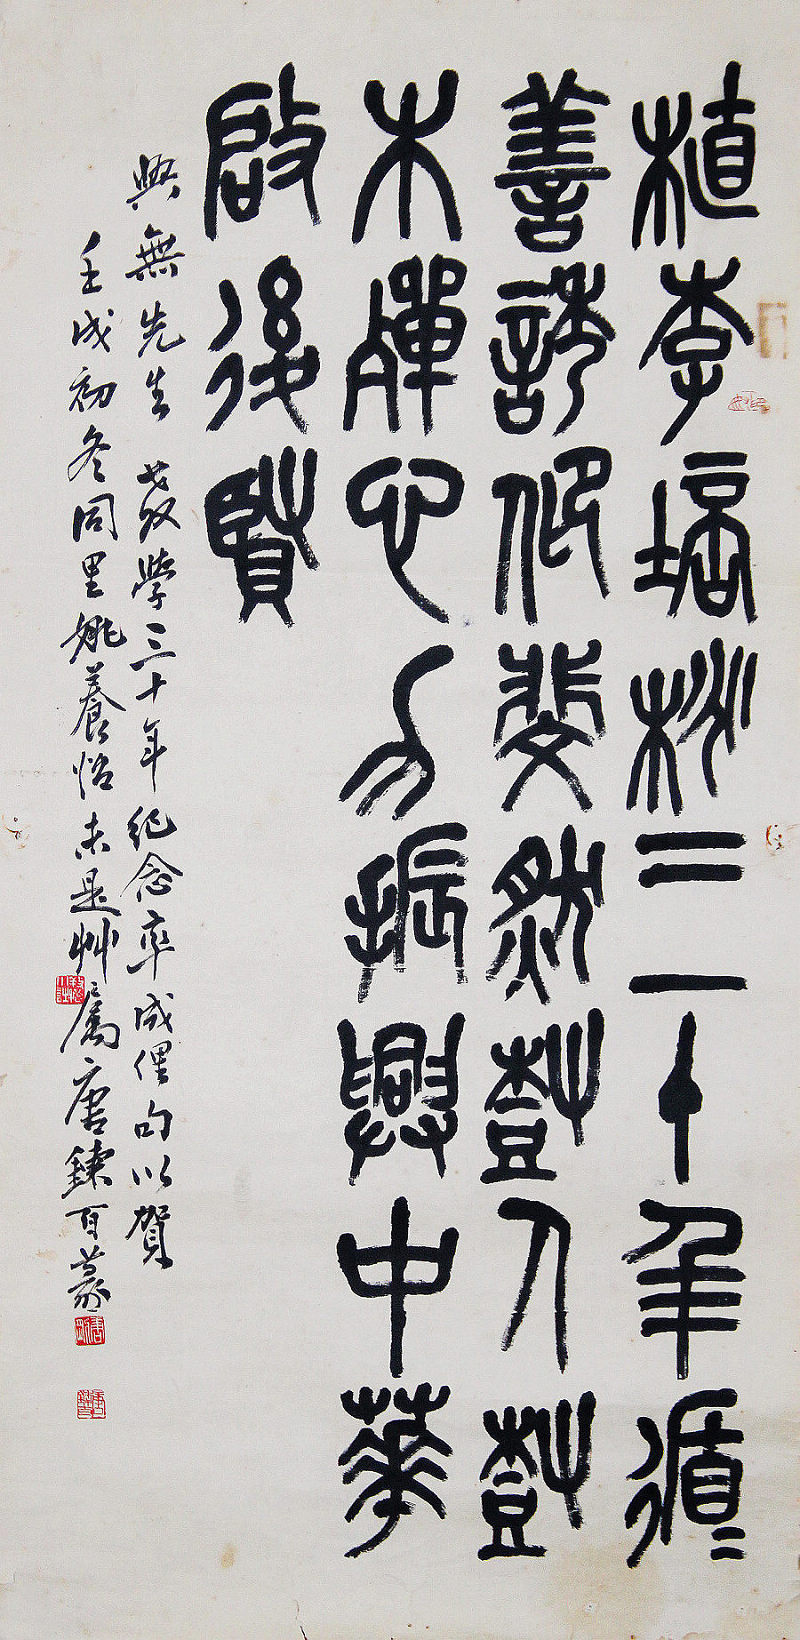 植李培桃三十年循〻
善誘仰斐然樹人樹
木殫心力振興中華
啟後賢
興無先生 教學三十年紀念率成俚句以賀
壬戌初冬同里姚養怡未是艸 屬唐鍊百篆